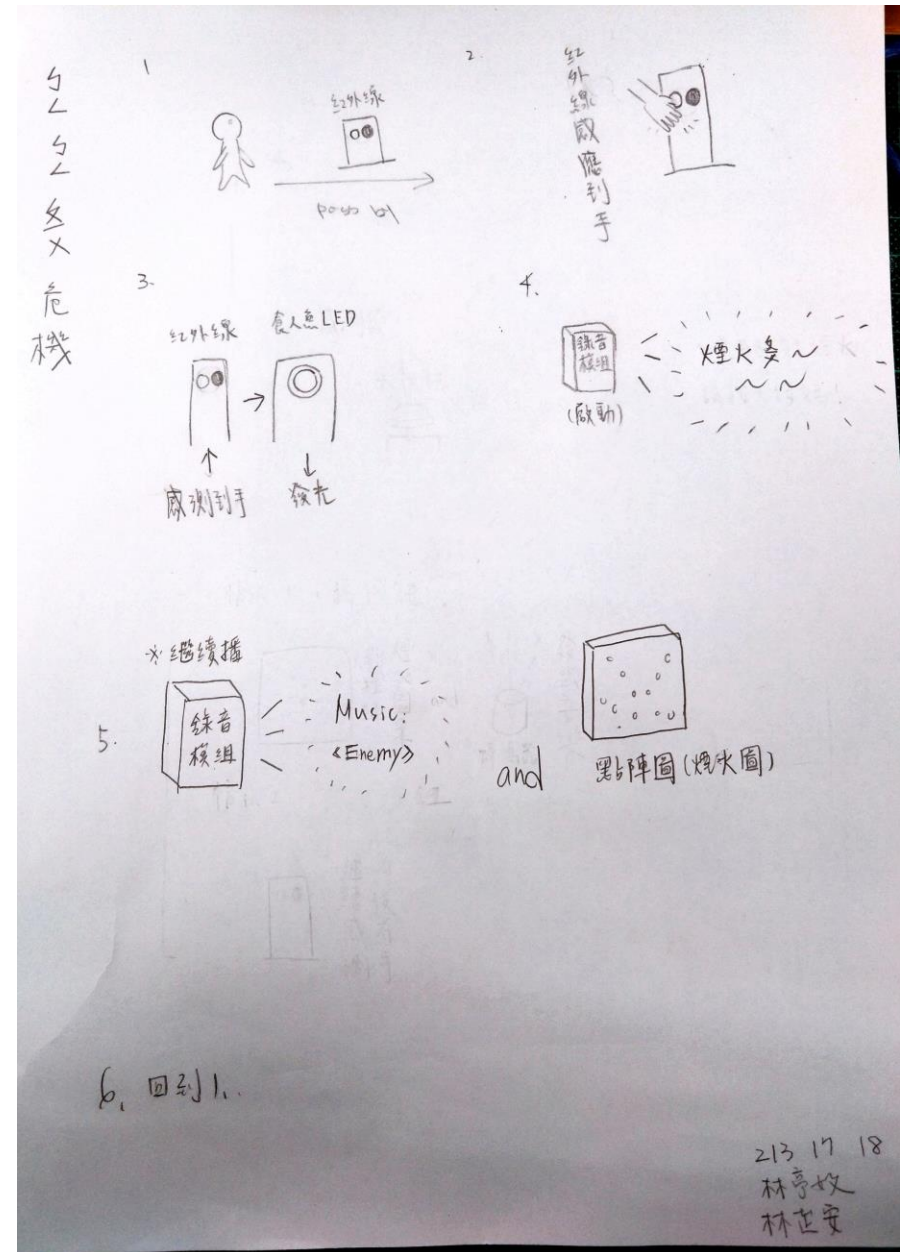 ㄅㄥㄅㄥㄆㄨ危機
1
紅外線
pass by
2.
紅外線感應到手
3.
紅外線
食人魚LED
感測到手
發光
4.
錄音
模組
(啟動)
煙火多~
~~
※繼續播
5.
錄音
模組
Music:
<Enemy>
and
點陣圖(煙火圖)
6. 回到1.
213 17 18